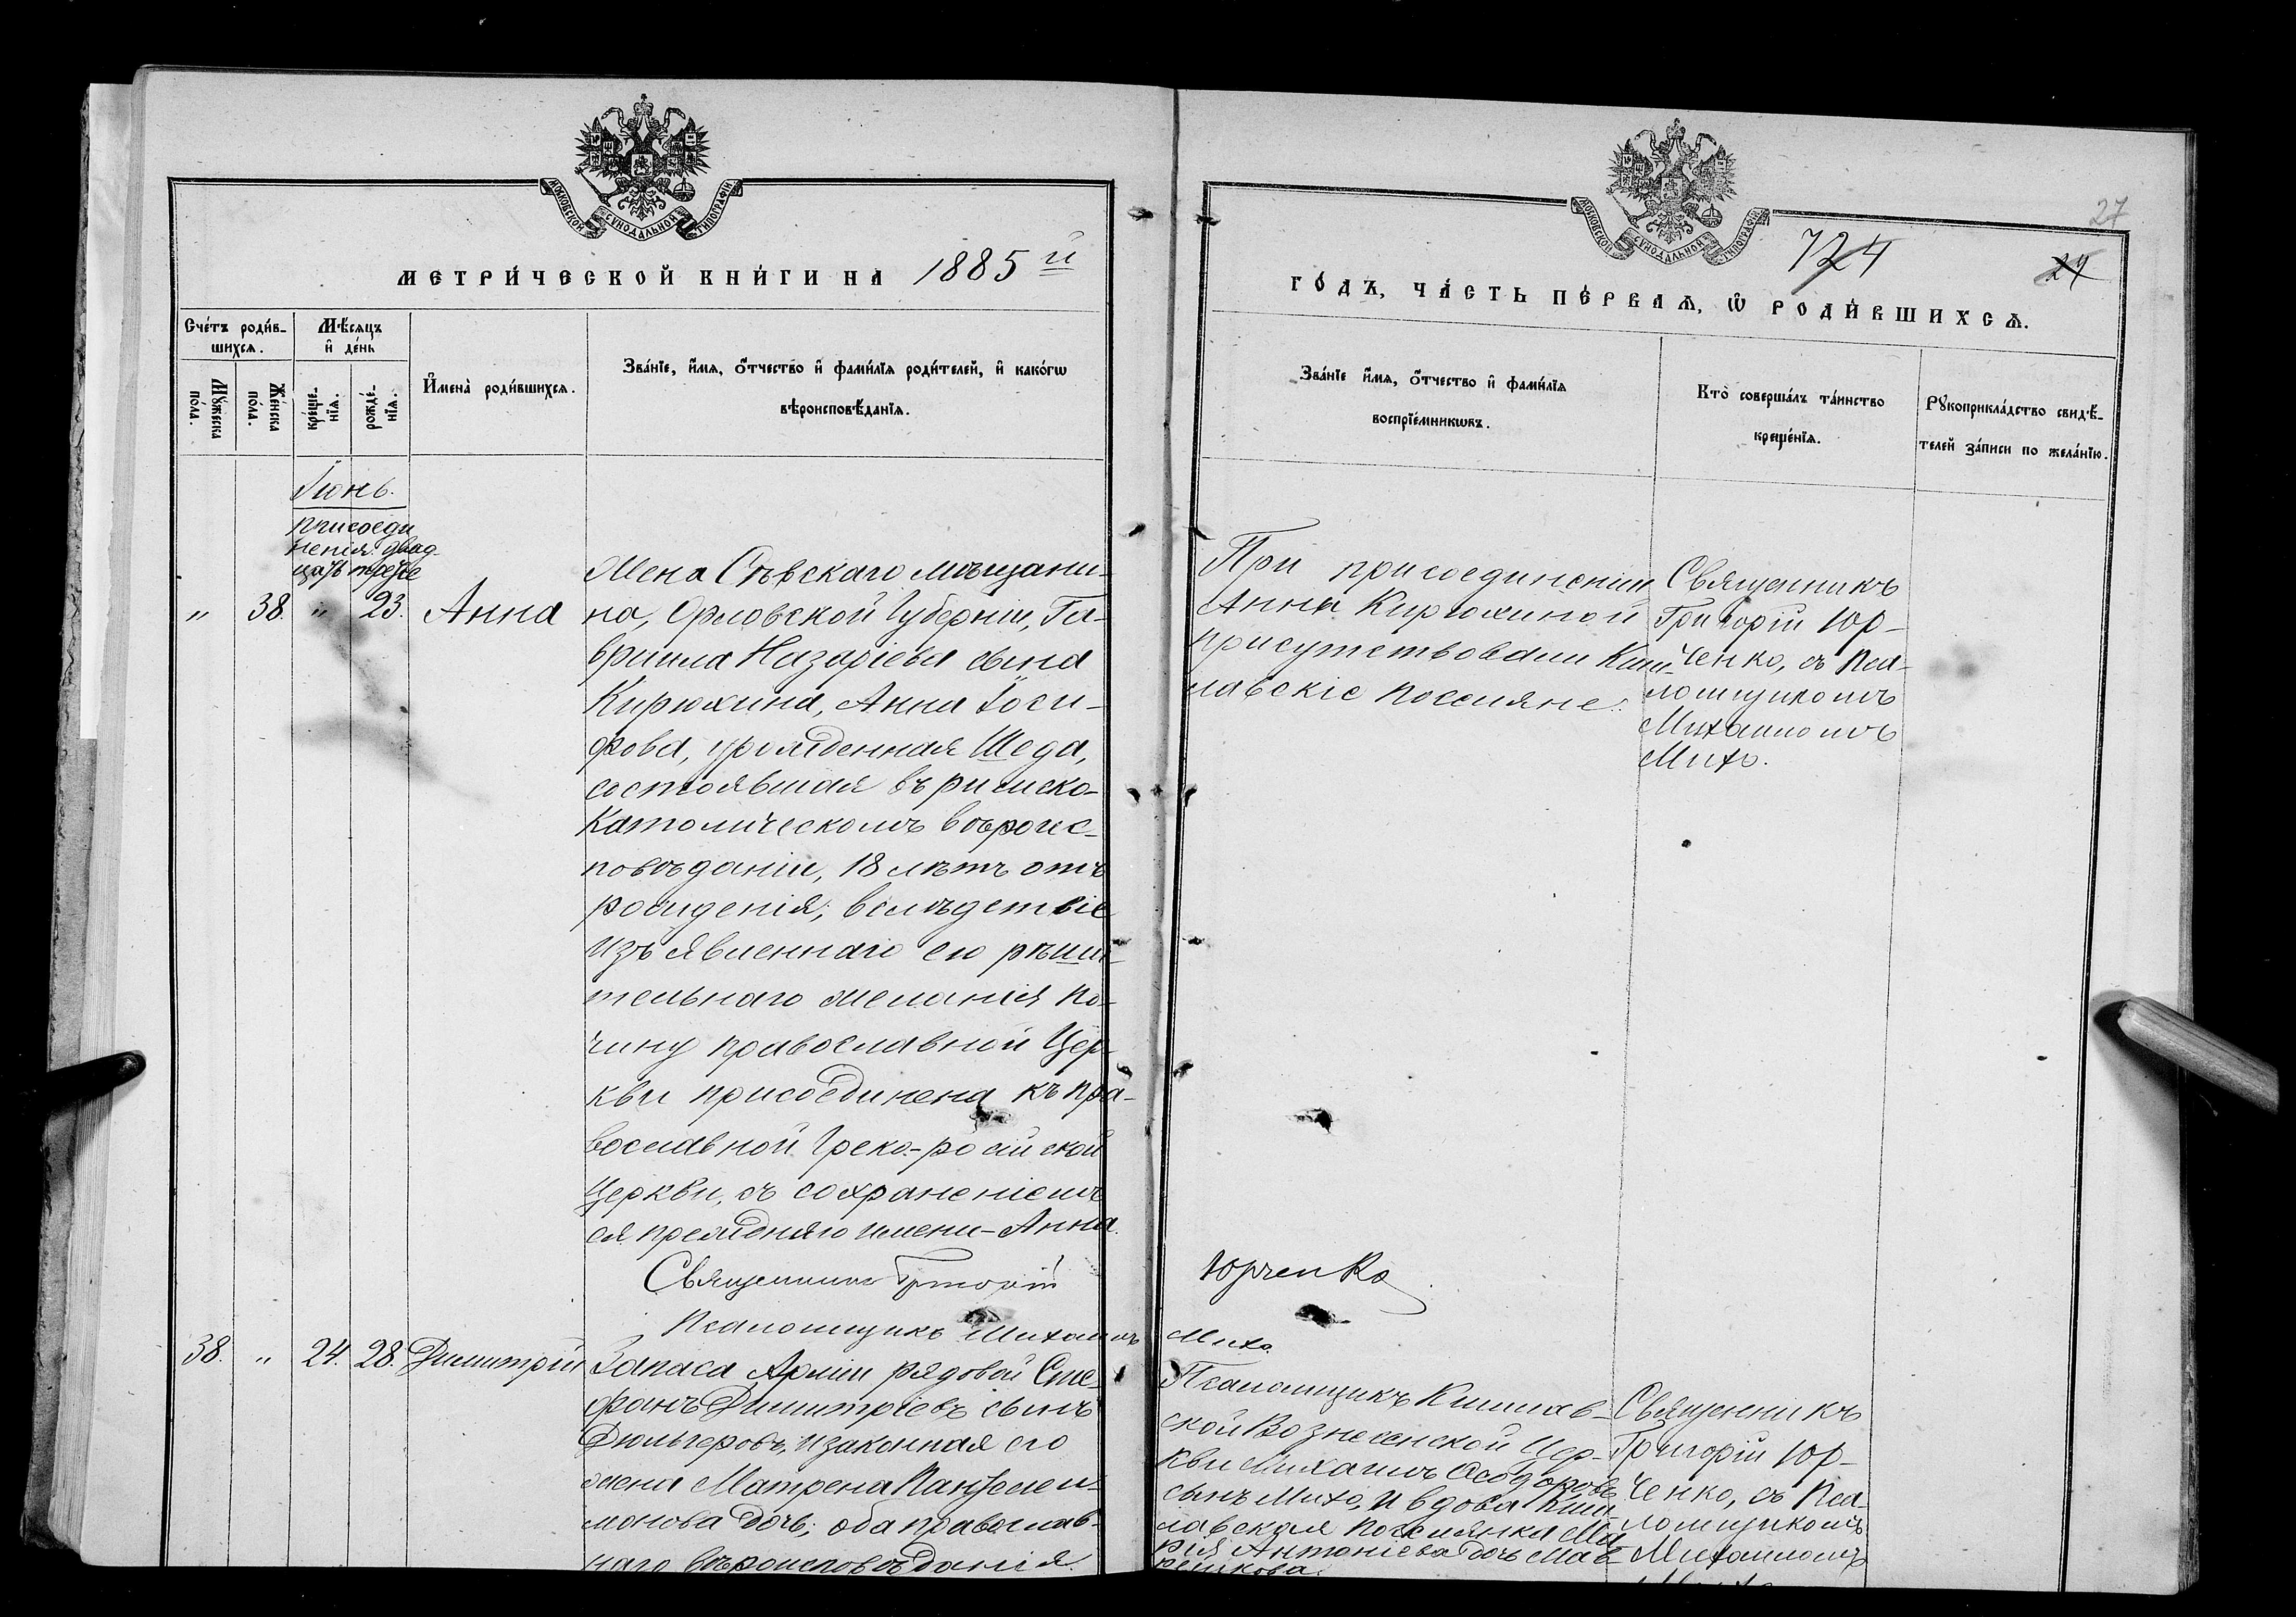 МОСКОВСКОЙ СѴНОДАЛЬНОЙ ТИПОГРАФІИ
МЕТРИ́ЧЕСКОЙ КНИ́ГИ НА 1885й
Сче́тъ роди́в-
шихсѧ.
Мѣ́сяцъ
и҆ де́нь
Мꙋ́жеска
по́ла.
Же́нска
по́ла.
креще́-
нїѧ.
рожде́-
нїѧ.
И҆мена̀ роди́вшихсѧ.
Зва́нїе, и҆́мѧ, ѻ҆́тчество и҆ фами́лїѧ роди́телей, и҆ како́гѡ
вѣроисповѣ́данїѧ.
Іюнь.
присоеди
ненія двад-
цать третье
" 38. " 23. Анна
Жена Сѣвскаго мѣщани-
на, Орловской Губерніи, Га-
вріила Назаріева сына
Кирюхина, Анна Іоси-
фова, урожденная Шеда,
состоявшая въ римско-
Католическомъ вѣроис-
повѣданіи, 18 лѣтъ отъ
рожденія, вслѣдствіе
изъявленнаго ею рѣши-
тельнаго желанія по
чину православной Цер-
кви присоединена къ пра-
вославной Греко-россійской
Церкви, съ сохраненіемъ
ея прежняго имени-Анна.
Священникъ Григорій
Псаломщикъ Михаилъ
38. " 24. 28. Димитрій
Запаса Арміи рядовой Сте-
фанъ Димитріевъ сынъ
Дюльгеровъ, и законная его
жена Матрена Пантелеи-
монова дочь; оба православ-
наго вѣроисповѣданія.
МОСКОВСКОЙ СѴНОДАЛЬНОЙ ТИПОГРАФІИ
27
724
24
ГО́ДЪ, ЧА́СТЬ ПЕ́РВАѦ, Ѡ҆ РОДИ́ВШИХСѦ.
Зва́нїе и҆́мѧ, ѻ҆́тчество и҆ фами́лїѧ
воспрїе́мникѡвъ.
Кто̀ соверша́лъ та́инство
креще́нїѧ.
Рꙋкоприкла́дство свидѣ́-
телей за́писи по жела́нїю.
При присоединеніи
Анны Кирюхиной
присутствовали Киш-
лавскіе поселяне.
Священникъ
Григорій Юр-
ченко, съ Пса-
ломщикомъ
Михаиломъ
Михо.
Юрченко
Михо.
Псаломщикъ Кишлав-
ской Вознесенской Цер-
кви Михаилъ Ѳеодоровъ
сынъ Михо, и вдова Киш-
лавская поселянка Ма-
рія Антоніева дочь
Священникъ
Григорій Юр-
ченко, съ Пса-
ломщикомъ
Михаиломъ